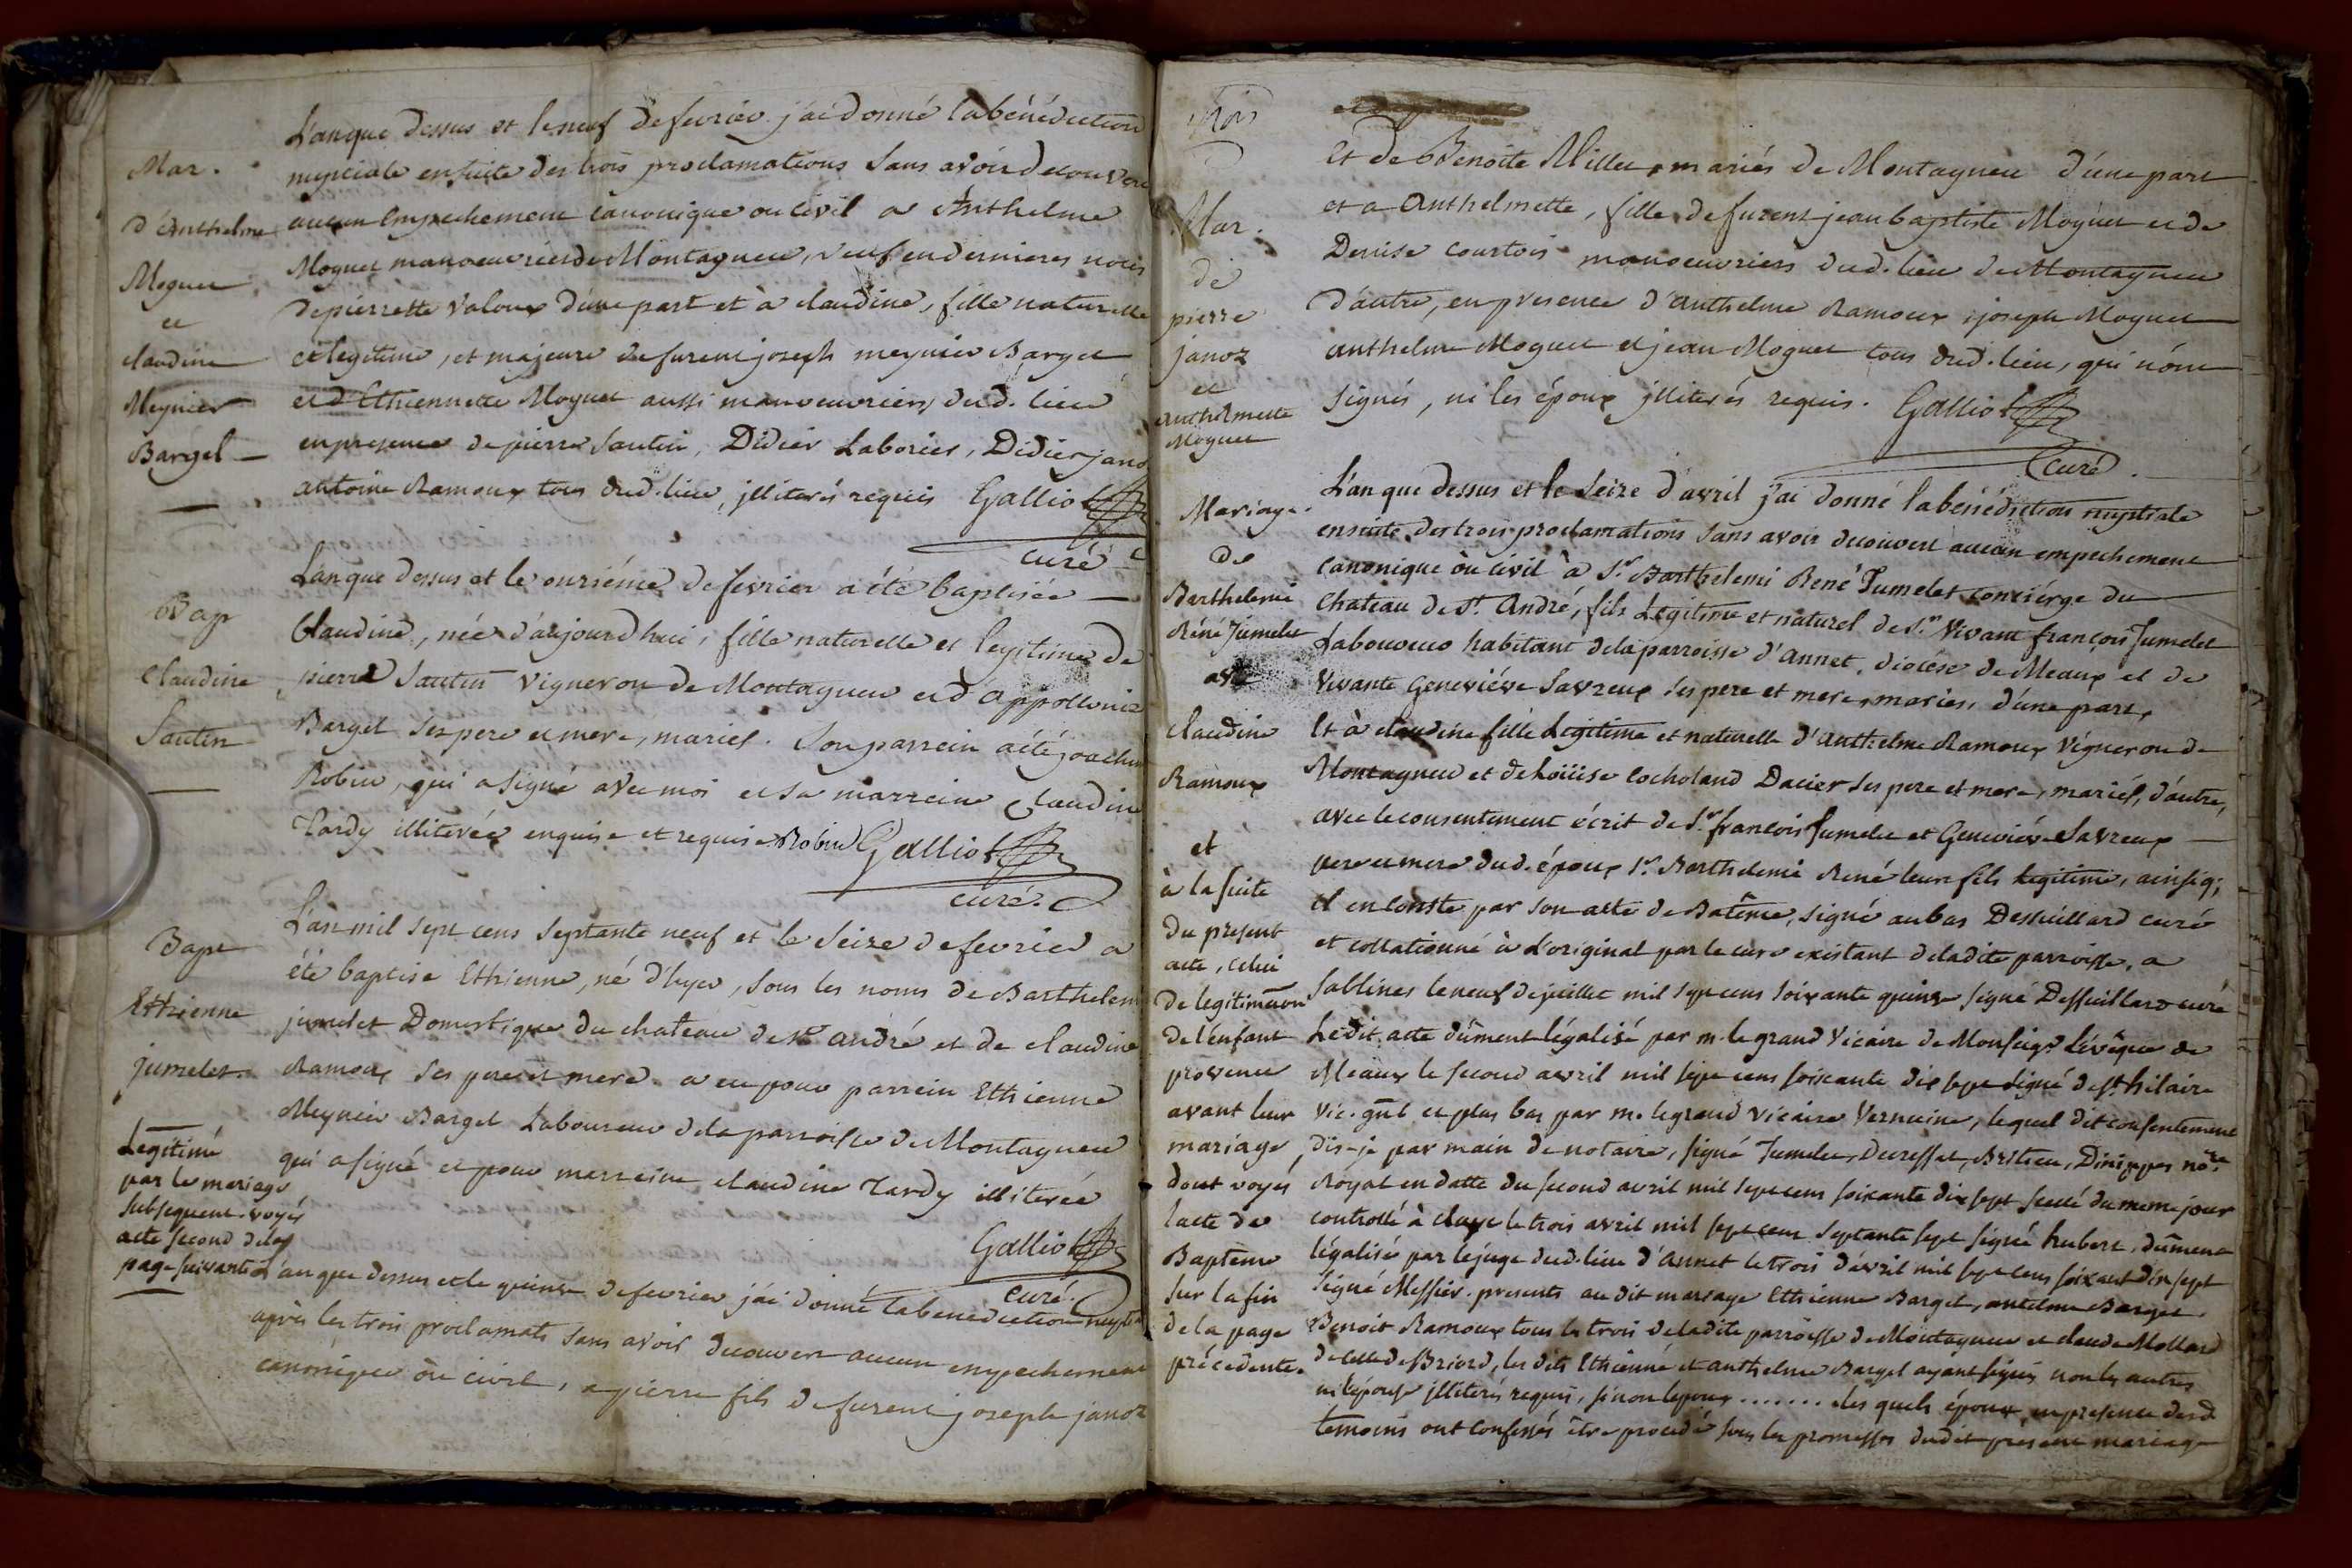 Mar.
d'Anthelme
Moguet
et
claudine
Meynier
Bargel
L'an que dessus et le neuf de fevrier j'ai donné la bénédiction
nuptiale ensuite des trois proclamations sans avoir decouvert
aucun Empechement canonique ou civil a Anthelme
Moguet manoeuvrier de Montagneu, veuf en dernieres noces
de pierrette valoux d'une part et à claudine, fille naturelle
et legitime, et majeure de furent joseph meynier Barget
et d'Ethiennette Moguet aussi manoeuvriers dud. lieu
en presence de pierre Sautin, Didier Laborier, Didier jano
antoine Ramoux tous dud. lieu, illiterés requis Galliot
curé
Bap
Claudine
Sautin
L'an que dessus et le onziéme de fevrier a été baptisée
Claudine, née d'aujourd'hui, fille naturelle et legitime de
pierre Sautin vigneron de Montagneu et d'appollonie
Barget ses pere et mere, mariés. Son parrein a été joachim
Robin, qui a signé avec moi et sa marreine Claudine
Tardy illiterée enquise et requise Robin Galliot
curé.
Bapt
Ethienne
jumelet
Legitimé
par le mariage
subsequent. voyés
acte second de la
page suivante
L'an mil sept cens septante neuf et le seize de fevrier a
été baptisé Ethienne, né d'hyer, sous les noms de Barthelemi
jumelet Domestique du chateau de st andré et de claudine
Ramoux ses pere et mere. a eu pour parrein Ethienne
Meynier Barget Laboureur de la parroisse de Montagneu
qui a signé et pour marreine claudine Tardy illiterée
Galliot
curé.
L'an que dessus et le quinze de fevrier j'ai donné la benediction nuptia
après les trois proclamats sans avoir decouvert aucun empechement
canonique ou civil, a pierre fils de furent joseph janoz
Mar.
de
pierre
janoz
et
anthelmette
Moguet
et de Benoite Millet, mariés de Montagneu d'une part
et a Anthelmette, fille de furent jean baptiste Moguet et de
Denise courtois manoeuvriers dud. lieu de Montagneu
d'autre, en presence d'anthelme Ramoux, joseph Moguet
anthelme Moguet et jean Moguet tous dud. lieu, qui n'ont
signés, ni les époux illiterés requis. Galliot
curé.
Mariage
de
Barthelemi
Réné Jumelet
avec
claudine
Ramoux
et
à la suite
du present
acte, celui
de legitimation
de l'enfant
provenu
avant leur
mariage
dont voyés
l'acte de
Baptême
sur la fin
de la page
précedente.
L'an que dessus et le seize d'avril j'ai donné la bénédiction nuptiale
ensuite des trois proclamations sans avoir decouvert aucun empechement
canonique ou civil à Sr. Barthelemi René Jumelet concierge du
Chateau de St. André, fils Legitime et naturel de Sr. Vivant françois Jumelet
Laboureur habitant de la parroisse d'Annet, diocése de Meaux et de
Vivante Geneviéve Savreux ses pere et mere, mariés, d'une part,
Et à claudine fille Legitime et naturelle d'Anthelme Ramoux Vigneron de
Montagneu et de Loüise Cocholand Dacier ses pere et mere, mariés, d'autre,
avec le consentement écrit de Sr. françois Jumelet et Geneviéve Savreux
pere et mere dud. époux Sr. Barthelemi René leur fils legitime, ainsi q;
il en conste par son acte de Batême, signé au bas Dessuillard curé
et collationné à l'original par le curé existant de ladite parroisse, a
Sablines le neuf de juillet mil sept cens soixante quinze signé Dessuillard curé
Ledit acte dûment légalisé par m. le grand Vicaire de Monseigr L'évêque de
Meaux le second avril mil sept cens soixante dix sept signé de St. hilaire
Vic. gnl. et plus bas par m. le grand vicaire Vernine, lequel dit consentement
dis-je par main de notaire, signé Jumelet, Dinippes nore.
Royal en datte du second avril mil sept cens soixante dix sept scellé du meme jour
controllé à claye le trois avril mil sept cens septante sept signé hubert, dûment
légalisé par le juge dud. lieu d'Annet le trois d'avril mil sept cens soixant dix sept
signé Messier. presents au dit mariage Ethienne Barget, antelme Barget
Benoit Ramoux tous les trois de ladite parroisse de Montagneu et claude Mollard
de celle de Briord, les dits Ethienne et anthelme Barget ayant signés non les autres
ni l'épouse illiterés requis, si non l'epoux ....... les quels époux, en presence desd.
temoins ont confessés être procedé sous les promesses dudit présent mariage